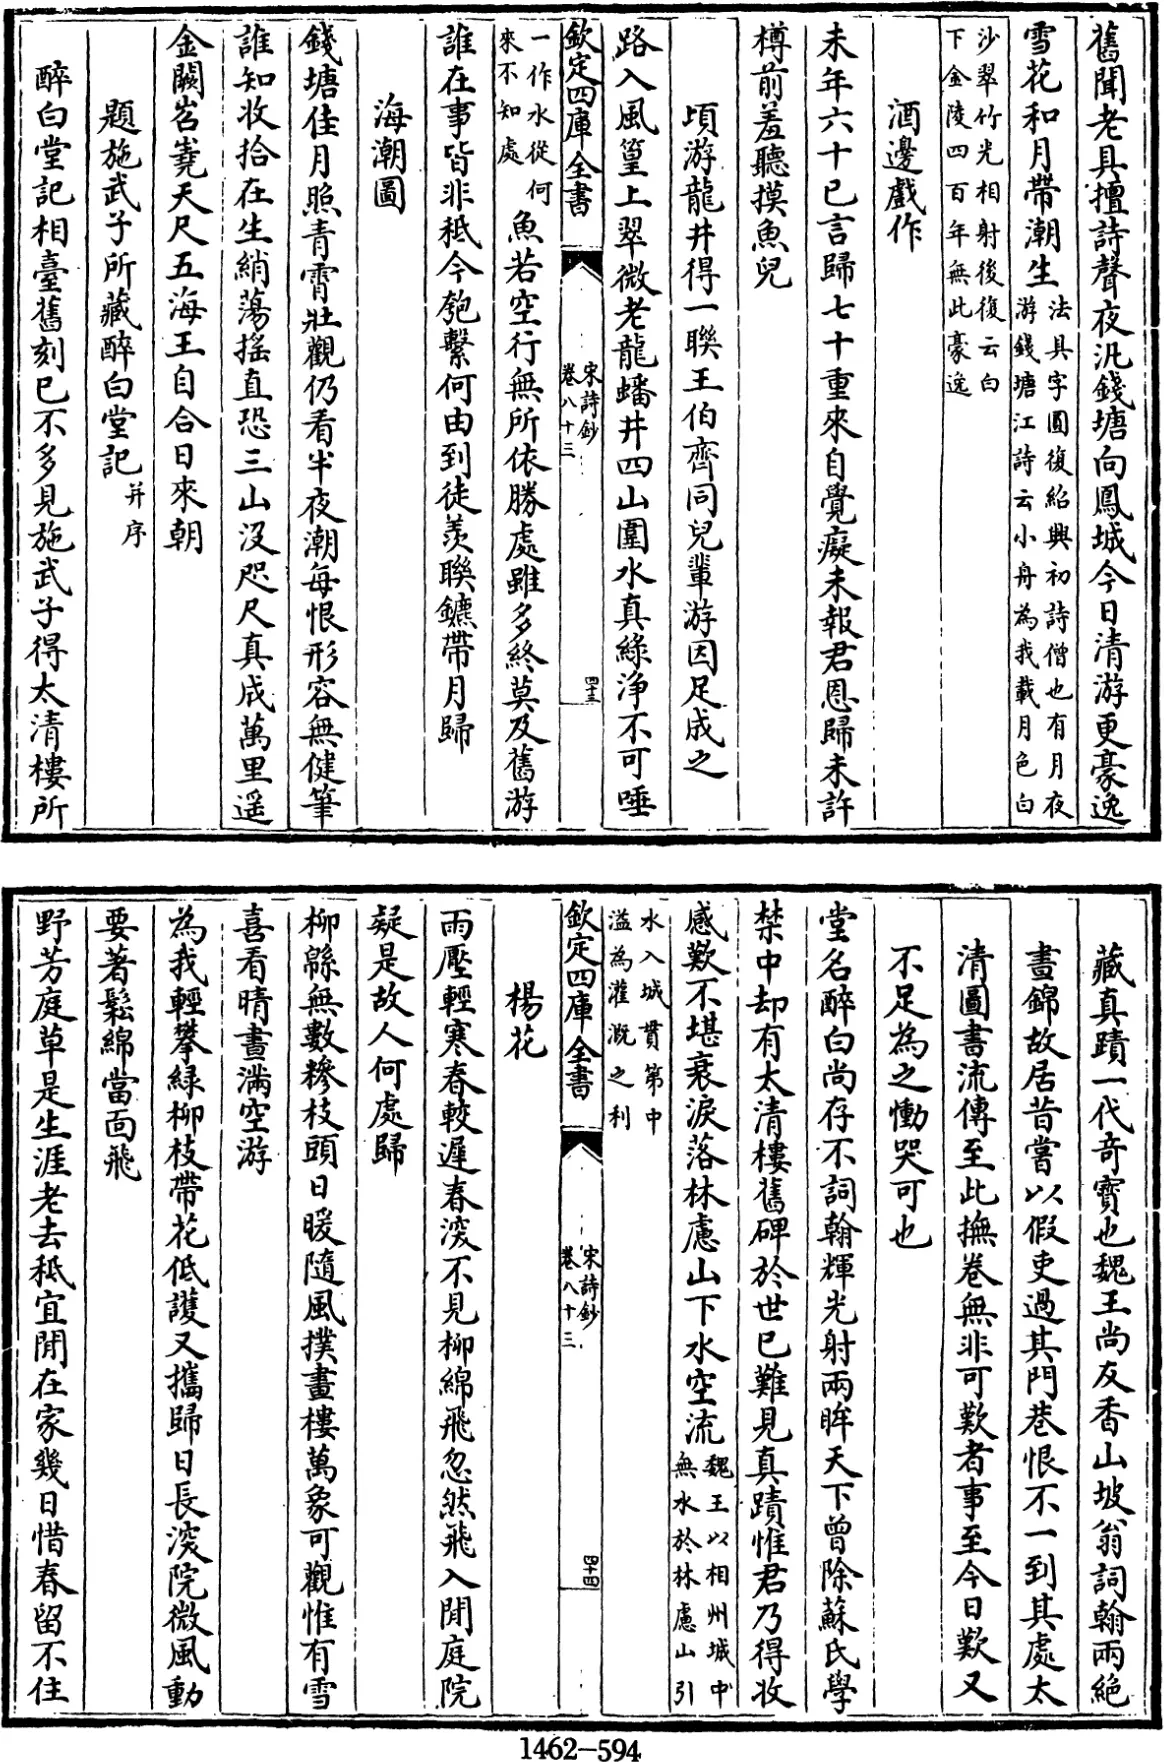 舊聞老具擅詩聲夜汎錢塘向鳳城今日清游更豪逸
雪花和月帶潮生法具字圓復紹興初詩僧也有月夜
游錢塘江詩云小舟為我載月色白
沙翠竹光相射後復云白
下金陵四百年無此豪逸
酒邊戲作
未年六十已言歸七十重來自覺癡未報君恩歸未許
樽前羞聽摸魚兒
頃游龍井得一聯王伯齊同兒輩游因足成之
路入風篁上翠微老龍蟠井四山圍水真綠淨不可唾
欽定四庫全書
宋詩鈔
卷八十三
四十三
一作水從何
來不知處
魚若空行無所依勝處雖多終莫及舊游
誰在事皆非秪今匏繫何由到徒羨聯鑣帶月歸
海潮圖
錢塘佳月照青霄壯觀仍看半夜潮每恨形容無健筆
誰知收拾在生綃蕩搖直恐三山沒咫尺真成萬里遥
金闕岧嶤天尺五海王自合日來朝
題施武子所藏醉白堂記并序
醉白堂記相臺舊刻已不多見施武子得太清樓所
藏真蹟一代奇寳也魏王尚友香山坡翁詞翰兩絶
晝錦故居昔嘗以假吏過其門巷恨不一到其處太
清圖書流傳至此撫卷無非可歎者事至今日歎又
不足為之慟哭可也
堂名醉白尚存不詞翰輝光射兩眸天下曾除蘇氏學
禁中却有太清樓舊碑於世已難見真蹟惟君乃得收
感歎不堪衰淚落林慮山下水空流魏王以相州城中
無水於林慮山引
水入城貫第中
溢為灌溉之利
欽定四庫全書
宋詩鈔
卷八十三
四十四
楊花
雨壓輕寒春較遲春深不見柳綿飛忽然飛入閒庭院
疑是故人何處歸
柳緜無數糝枝頭日暖隨風撲畫樓萬象可觀惟有雪
喜看晴晝滿空游
為我輕攀緑柳枝帶花低護又攜歸日長深院微風動
要著鬆綿當面飛
野芳庭草是生涯老去秪宜閒在家幾日惜春留不住
1462-594